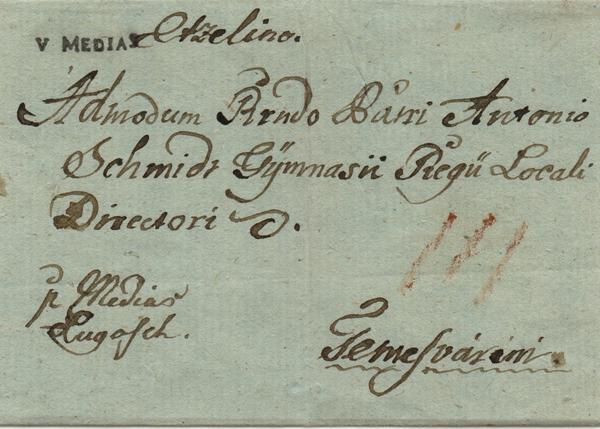 V MEDIAS Etzelino.
Admodum Rrndo Patri Antonio
Schmidt Gÿmnasii Regii Locali
Directori
p Medias
Lugosch.
Temesvarini.